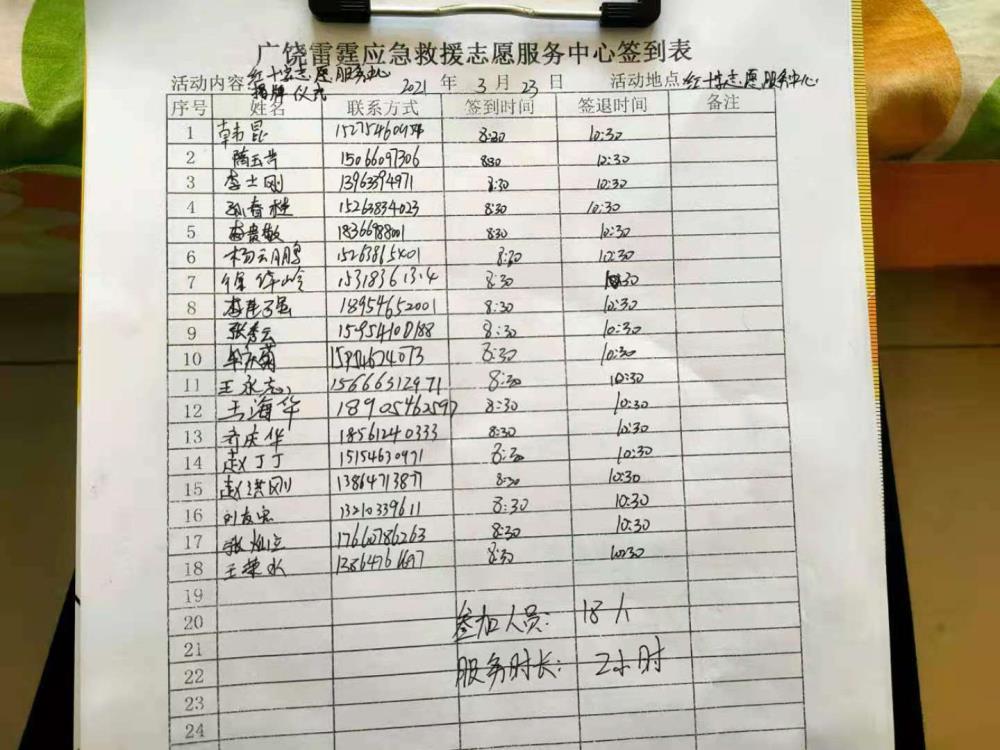 广饶雷霆应急救援志愿服务中心签到表
活动内容 红十字志愿服务中心揭牌仪式 2021 年 3 月 23 日 活动地点 红十字志愿服务中心
序号 姓名 联系方式 签到时间 签退时间 备注
1 韩昆 8:30 10:30
2 15066097306 8:30 10:30
3 李士刚 13963394971 8:30 10:30
4 孙春桂 15263834023 8:30 10:30
5 李贵敏 18366988001 8:30 10:30
6 杨云鹏 8:30 10:30
7 8:30 10:30
8 18954652001 8:30 10:30
9 张秀云 15954100188 8:30 10:30
10 8:30 10:30
11 王永志 15666312971 8:30 10:30
12 王海华 18905462597 8:30 10:30
13 乔庆华 18561240333 8:30 10:30
14 赵丁丁 15154630971 8:30 10:30
15 赵洪刚 13864713877 8:30 10:30
16 刘友忠 13210339611 8:30 10:30
17 17660786263 8:30 10:30
18 王荣水 8:30 10:30
19
20 参加人员: 18人
21
22 服务时长: 2小时
23
24